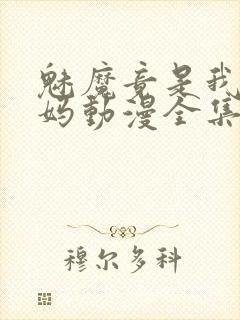 魅魔竟是我
妈动漫全集
穆尔多科